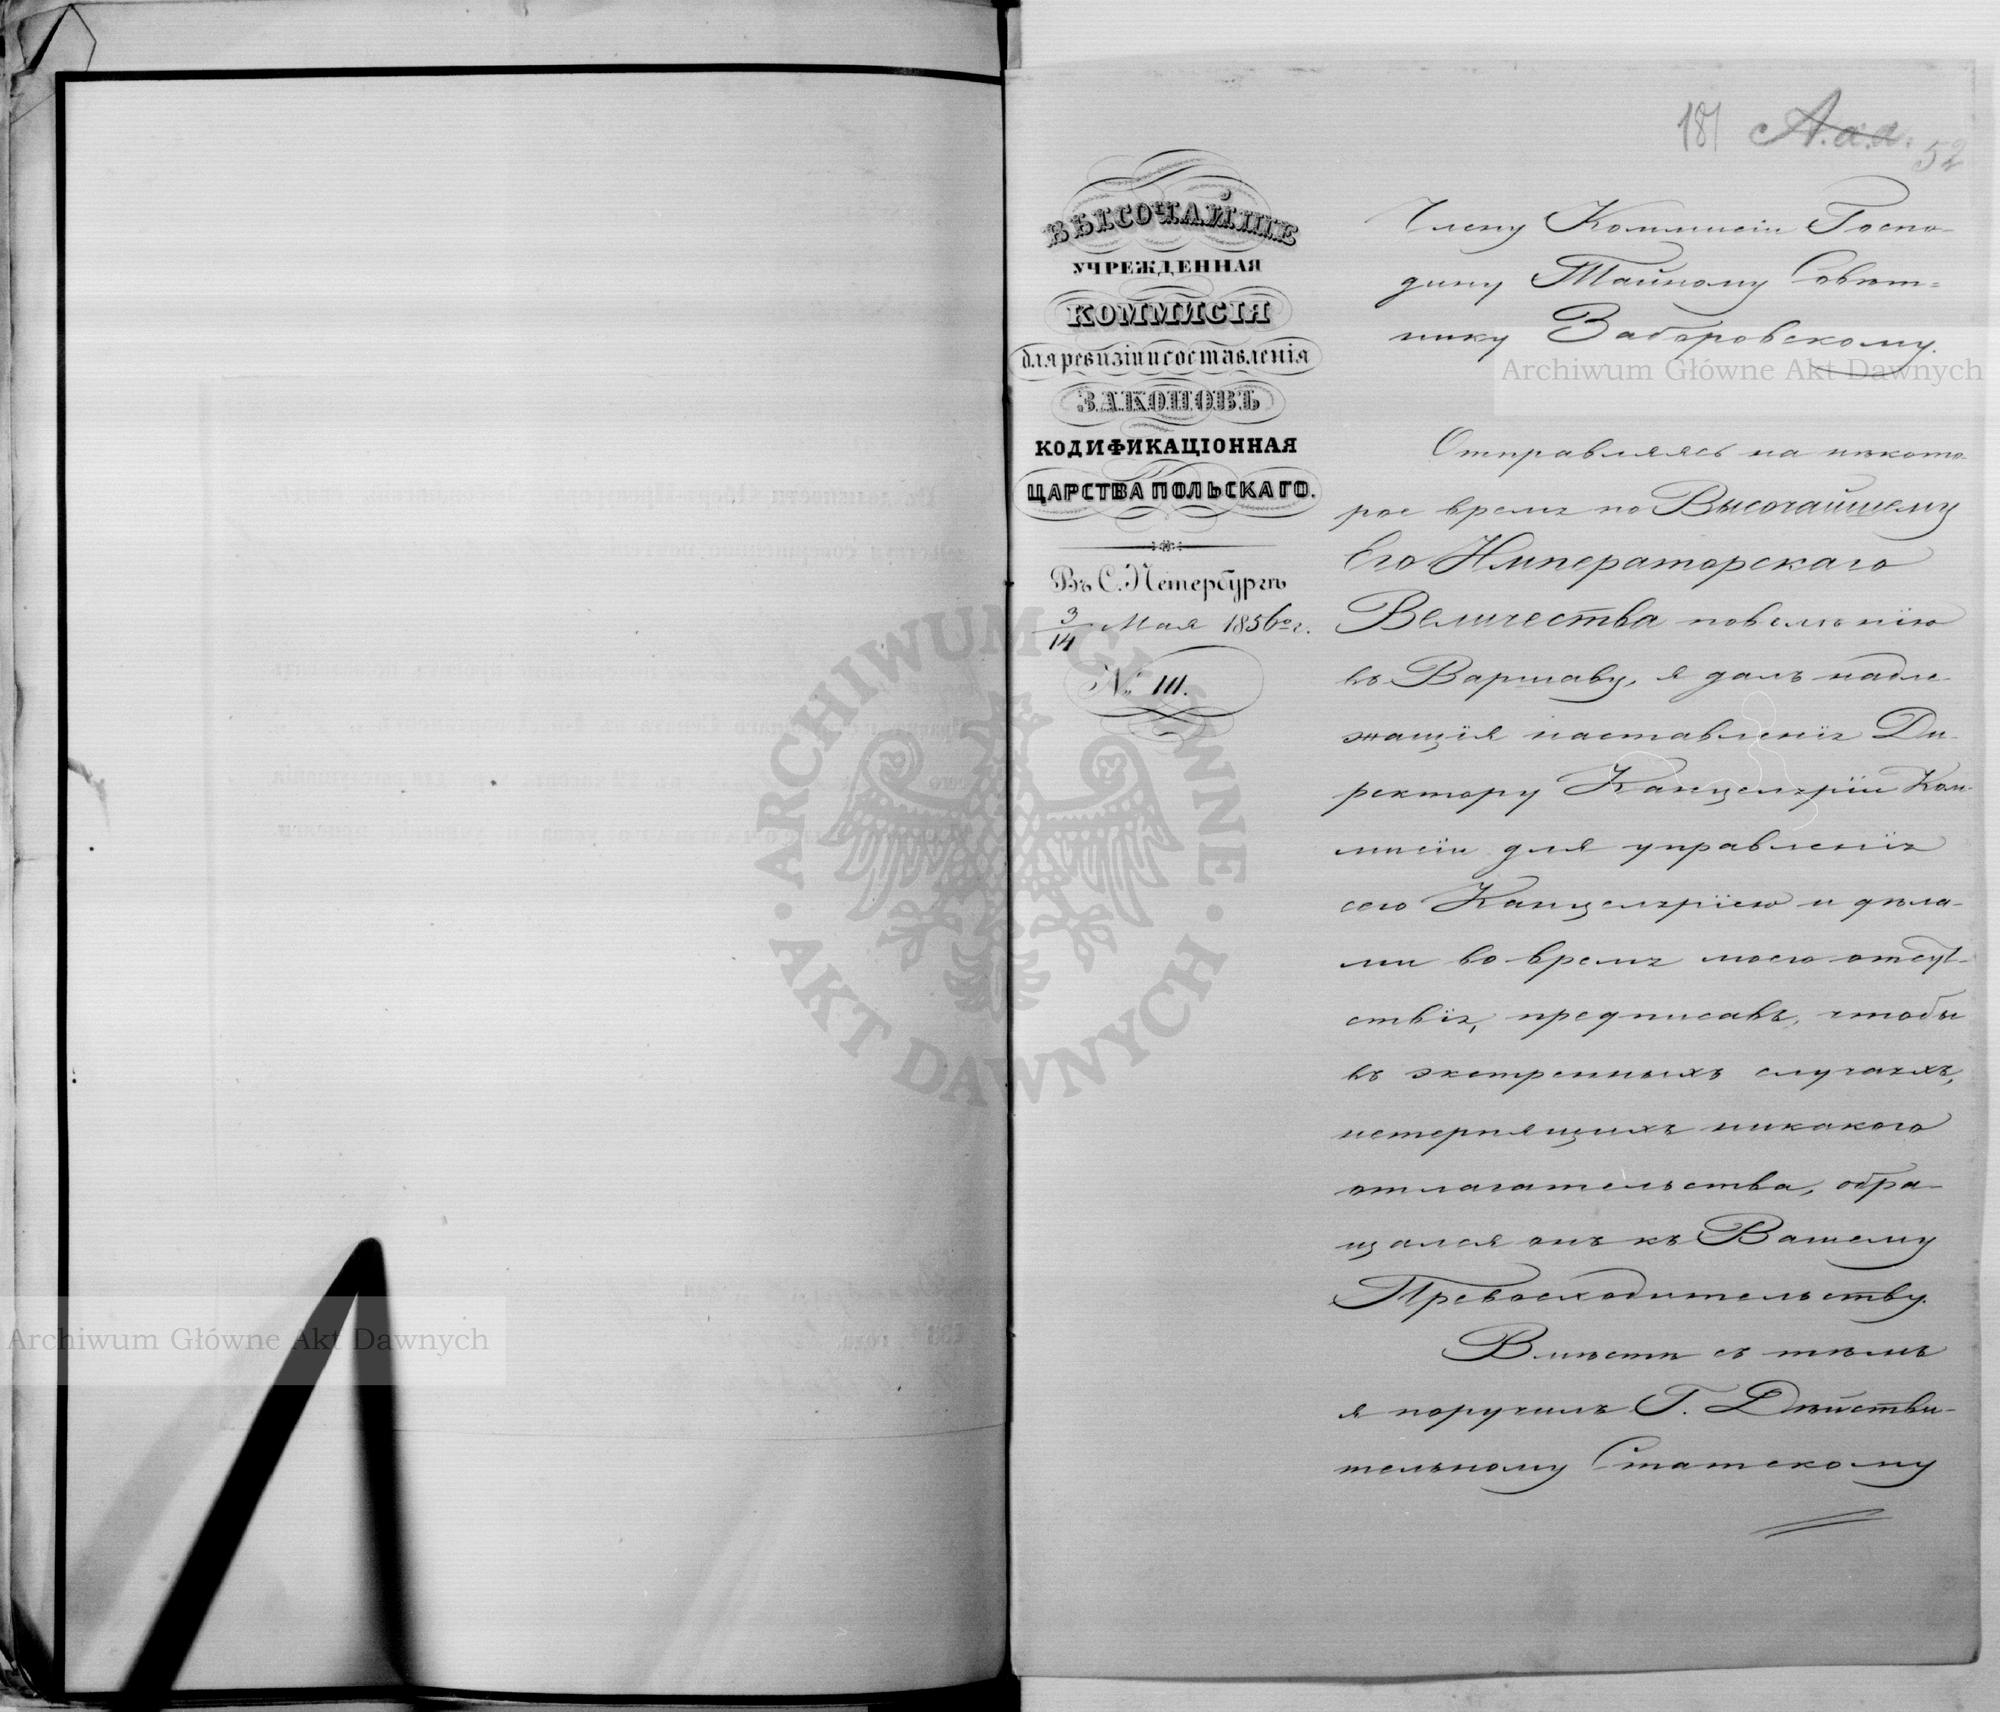 181 А.а.а. 52
ВЫСОЧАЙШЕ
УЧРЕЖДЕННАЯ
КОММИСІЯ
для ревизіи и составленія
ЗАКОНОВЪ
КОДИФИКАЦІОННАЯ
ЦАРСТВА ПОЛЬСКАГО.
Въ С. Петербургѣ
3/14 Мая 1856го г.
№ 111.
Члену Коммисіи Госпо-
дину Тайному Совѣт=
нику Заборовскому.
Отправляясь на нѣкото-
рое время по Высочайшему
Его Императорскаго
Величества повелѣнію
въ Варшаву, я далъ надле-
жащія наставленія Ди-
ректору Канцеляріи Ком-
мисіи для управленія
сего Канцеляріею и дѣла-
ми во время моего отсут-
ствія, предписавъ, чтобы
въ экстренныхъ случаяхъ,
нетерпящихъ никакого
отлагательства, обра-
щался онъ къ Вашему
Превосходительству.
Вмѣстѣ съ тѣмъ
я поручилъ Г. Дѣйстви-
тельному Статскому
Archiwum Główne Akt Dawnych
Archiwum Główne Akt Dawnych
ARCHIWUM GŁÓWNE
AKT DAWNYCH